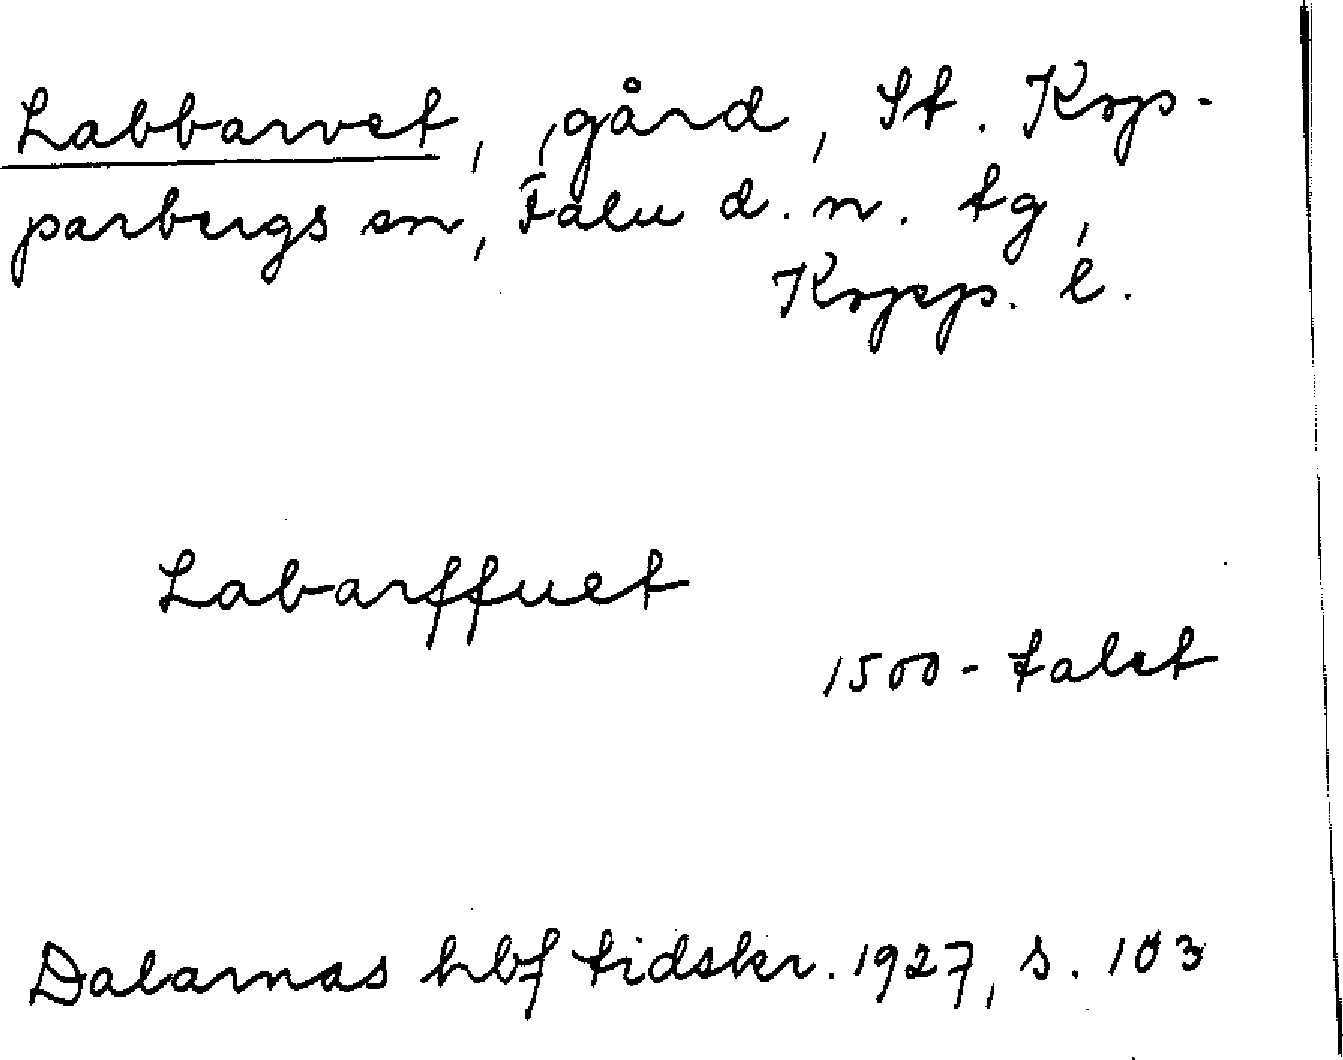 Labbarvet, gård, St. Kop-
parbergs sn, Falu d. n. tg,
Kopp. l.
Labarffuet
1500-talet
Dalarnas hbf tidskr. 1927, s. 103